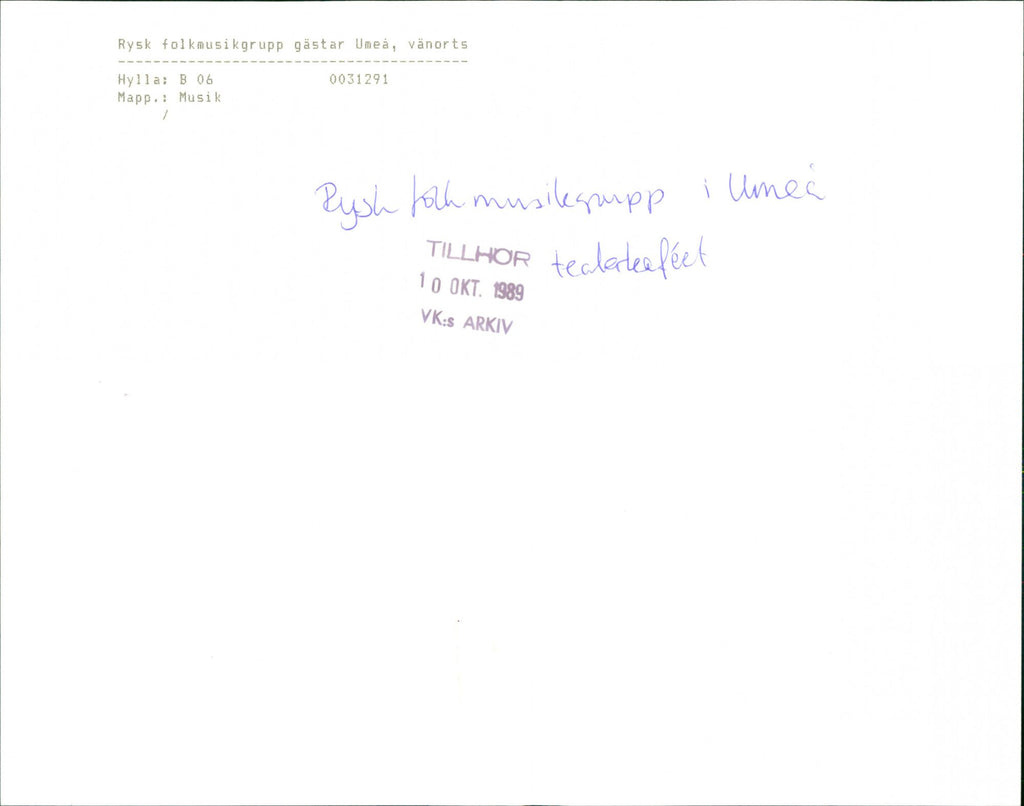 Rysk folkmusikgrupp gästar Umeå, vänorts
----------------------------------------
Hylla: B 06 0031291
Mapp.: Musik
/
Rysk folkmusikgrupp i Umeå
teaterkaféet
TILLHÖR
10 OKT. 1989
VK:s ARKIV